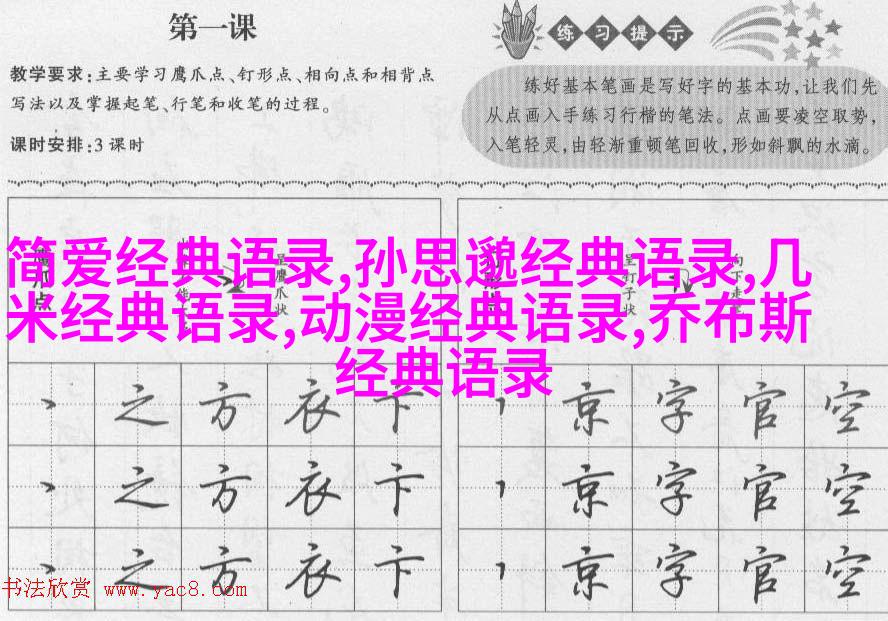 第一课
教学要求:主要学习鹰爪点、钉形点、相向点和相背点
写法以及掌握起笔、行笔和收笔的过程。
课时安排:3 课时
练习提示
练好基本笔画是写好字的基本功,让我们先
从点画入手练习行楷的笔法。点画要凌空取势,
入笔轻灵,由轻渐重顿笔回收,形如斜飘的水滴。
简爱经典语录,孙思邈经典语录,几
米经典语录,动漫经典语录,乔布斯
经典语录
呈鹰爪状
呈钉子状
丶 之 方 衣 卞
丶 之 方 衣 卞
丶 之 方 衣 卞
京 字 官 空
京 字 官 空
京 字 官 空
书法欣赏 www.yac8.com